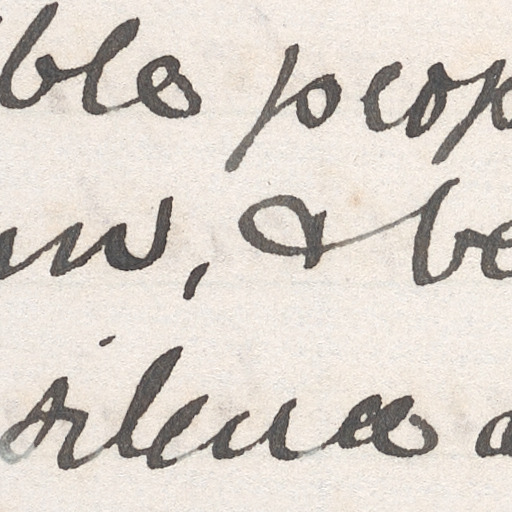 ble peop
w, & be
silence a